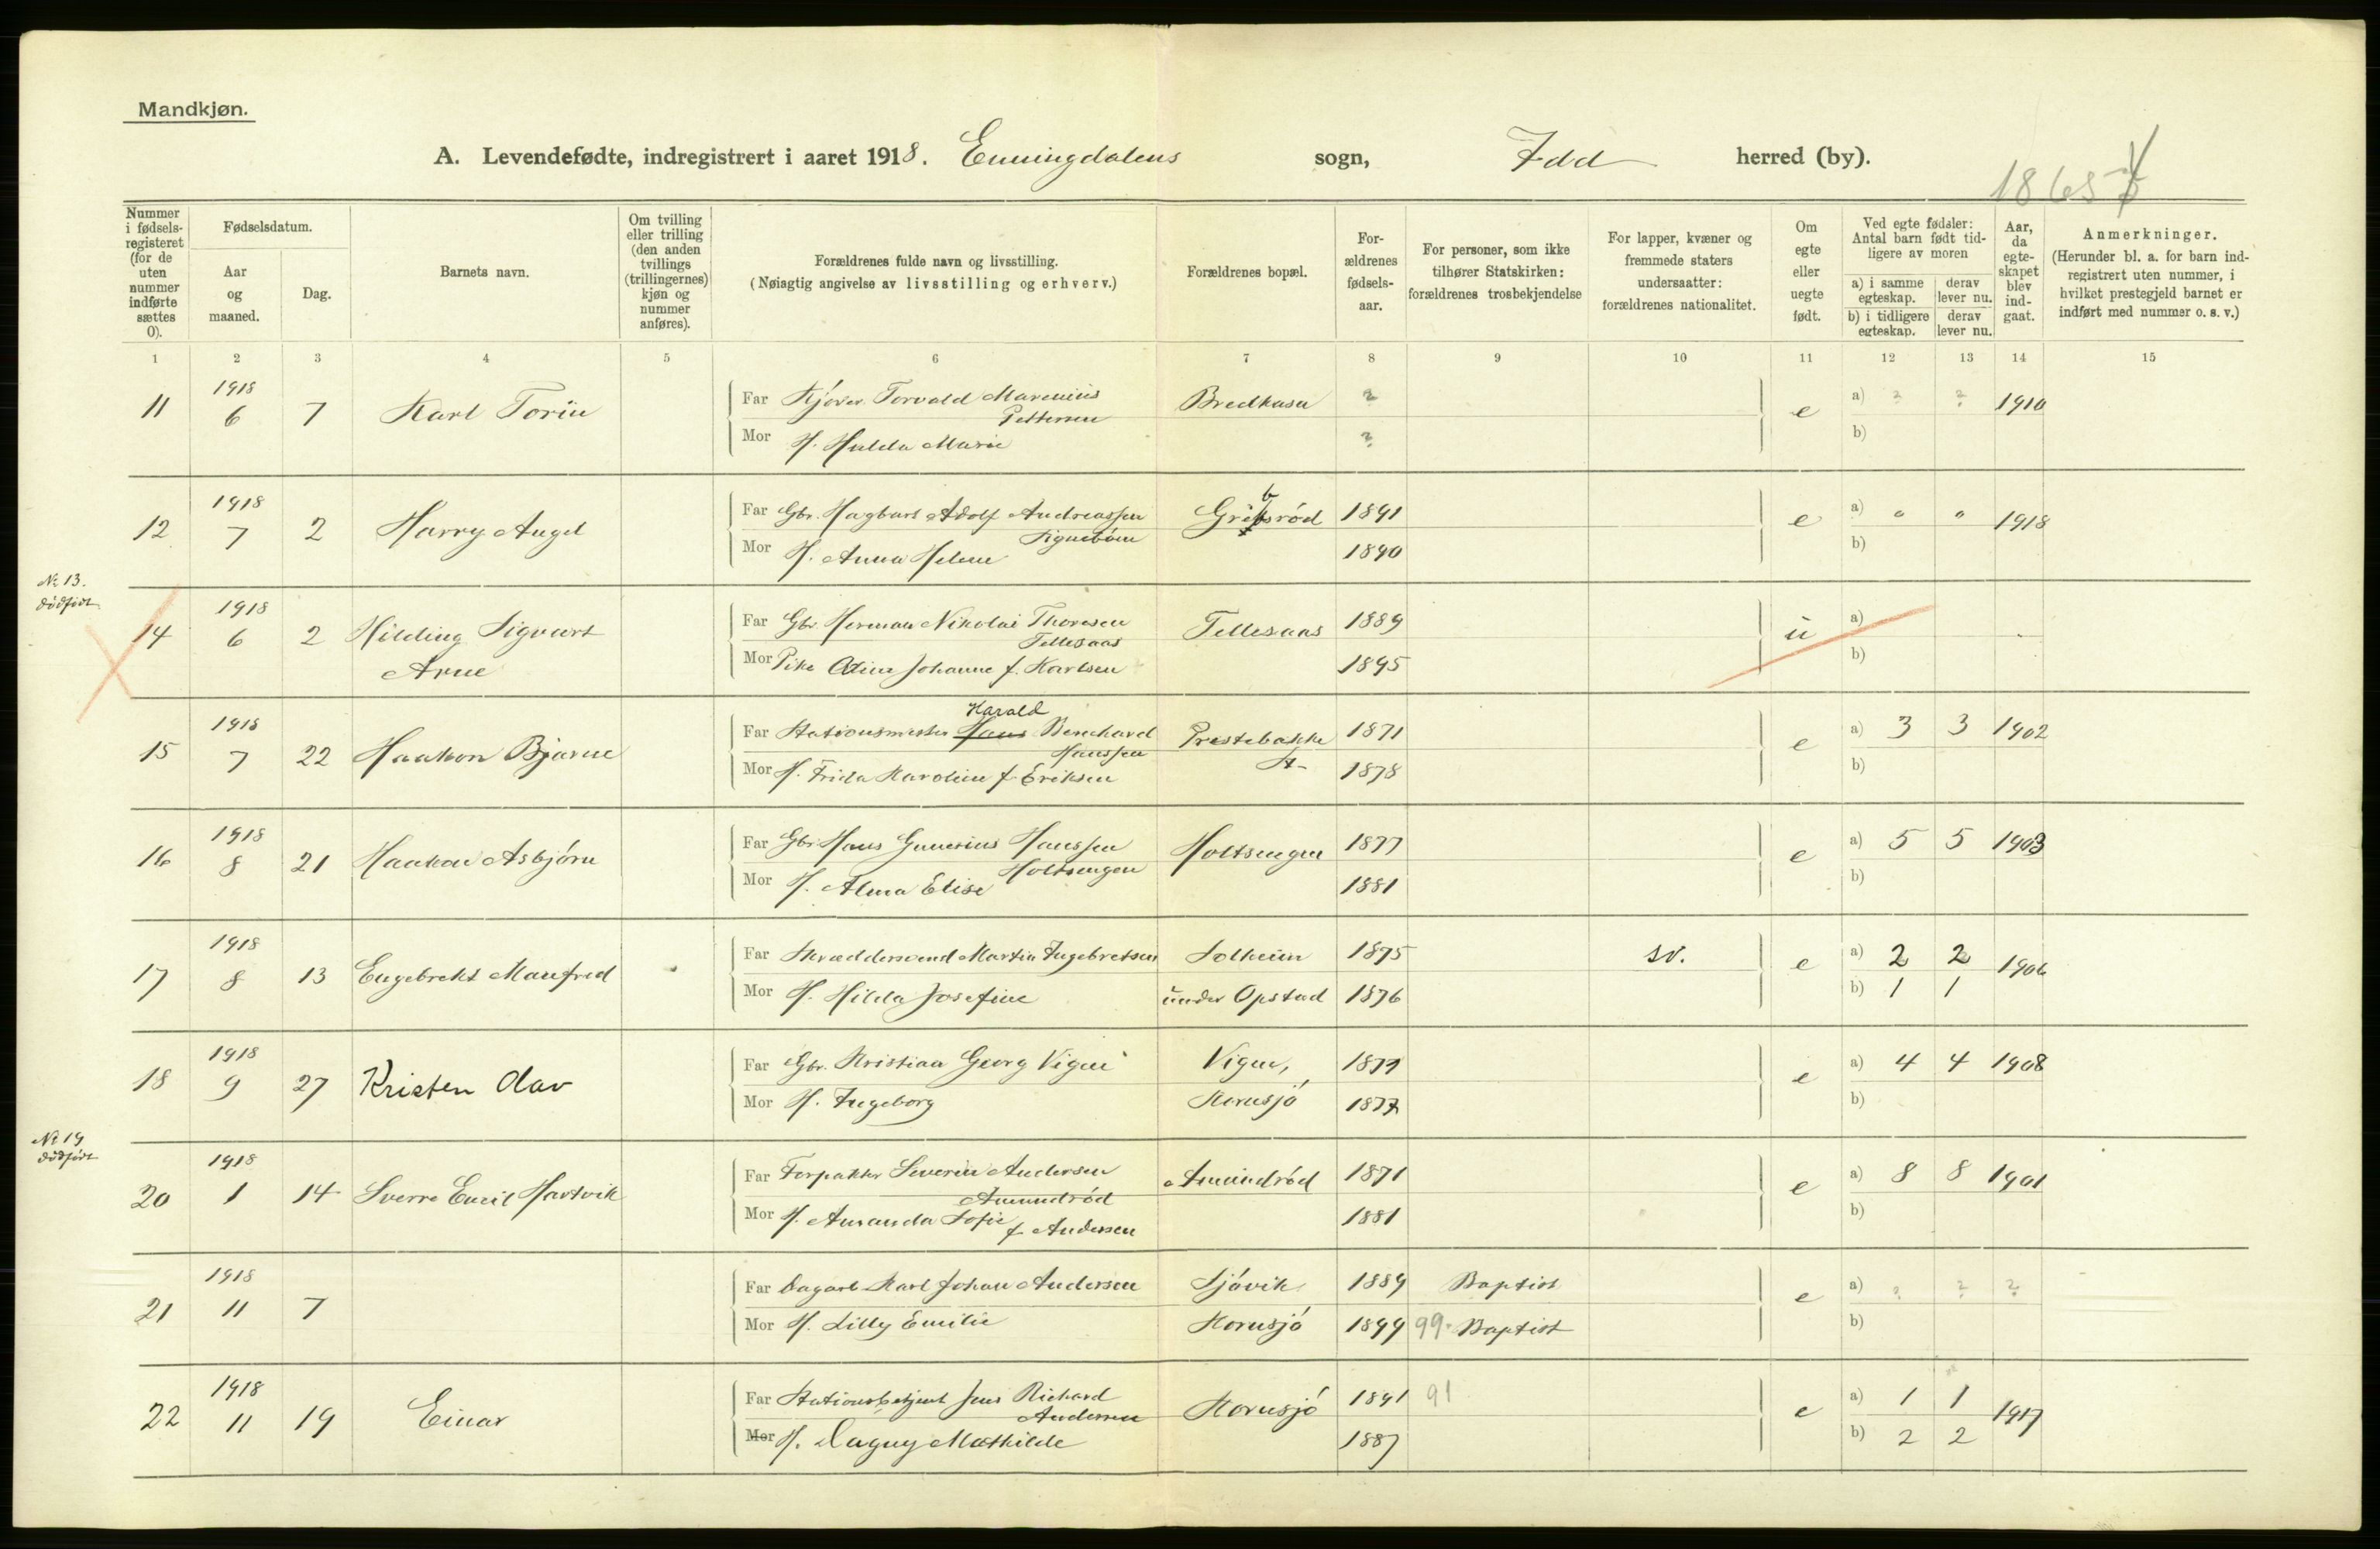 Mandkjøn.
A. Levendefødte, indregistrert i aaret 1918. Enningdalens sogn, Idd herred (by).
1865
Nummer i fødsels-registeret (for de uten nummer indførte sættes 0).
Fødselsdatum.
Aar og maaned.
Dag.
Barnets navn.
Om tvilling eller trilling (den anden tvillings (trillingernes) kjøn og nummer anføres).
Forældrenes fulde navn og livsstilling.
(Nøiagtig angivelse av livsstilling og erhverv.)
Forældrenes bopæl.
For-ældrenes fødsels-aar.
For personer, som ikke tilhører Statskirken: forældrenes trosbekjendelse
For lapper, kvæner og fremmede staters undersaatter: forældrenes nationalitet.
Om egte eller uegte født.
Ved egte fødsler: Antal barn født tid-ligere av moren
a) i samme egteskap. derav lever nu.
b) i tidligere egteskap. derav lever nu.
Aar, da egte-skapet blev ind-gaat.
Anmerkninger.
(Herunder bl. a. for barn ind-registrert uten nummer, i hvilket prestegjeld barnet er indført med nummer o. s. v.)
1 2 3 4 5 6 7 8 9 10 11 12 13 14 15
11 1918 6 7 Karl Torin Far Kjører Torvald Marenius Pettersen Bredkasa ? e a) ? ? 1910
Mor H. Hulda Marie ? b)
12 1918 7 2 Harry Angel Far Gbr. Hagbart Adolf Andreassen Signebøen Gribsrød 1891 e a) " " 1918
Mor H. Anna Helene 1890 b)
No 13. dødfødt
14 1918 6 2 Hilding Sigvart Arne Far Gbr. Herman Nikolai Thoresen Tellesaas Tellesaas 1889 u a)
Mor Pike Odine Johanne f. Karlsen 1895 b)
15 1918 7 22 Haakon Bjarne Far Stationsmester Hans Harald Bernhard Hanssen Prestebakke St. 1871 e a) 3 3 1902
Mor H. Frida Karoline f. Eriksen 1878 b)
16 1918 8 21 Haakon Asbjørn Far Gbr. Hans Gunerius Hanssen Holtsengen Holtsengen 1877 e a) 5 5 1903
Mor H. Alma Elise 1881 b)
17 1918 8 13 Engebrekt Manfred Far Skræddersvend Martin Ingebretsen Solheim 1875 sv. e a) 2 2 1906
Mor H. Hilda Josefine under Opstad 1876 b) 1 1
18 1918 9 27 Kristen Olav Far Gbr. Kristian Georg Vigne Vigne, 1877 e a) 4 4 1908
Mor H. Ingeborg Kornsjø 1877 b)
No 19 dødfødt
20 1918 1 14 Sverre Emil Hartvik Far Forpakter Severin Andersen Amundrød Amundrød 1871 e a) 8 8 1901
Mor H. Amanda Sofie f. Andersen 1881 b)
21 1918 11 7 Far Dagarb. Karl Johan Andersen Sjøvik 1889 Baptist e a) ? ? ?
Mor H. Lilly Emilie Kornsjø 1899 99. Baptist b)
22 1918 11 19 Einar Far Stationsbetjent Jens Richard Andersen Kornsjø 1891 91 e a) 1 1 1917
Mor H. Dagny Mathilde 1887 b) 2 2